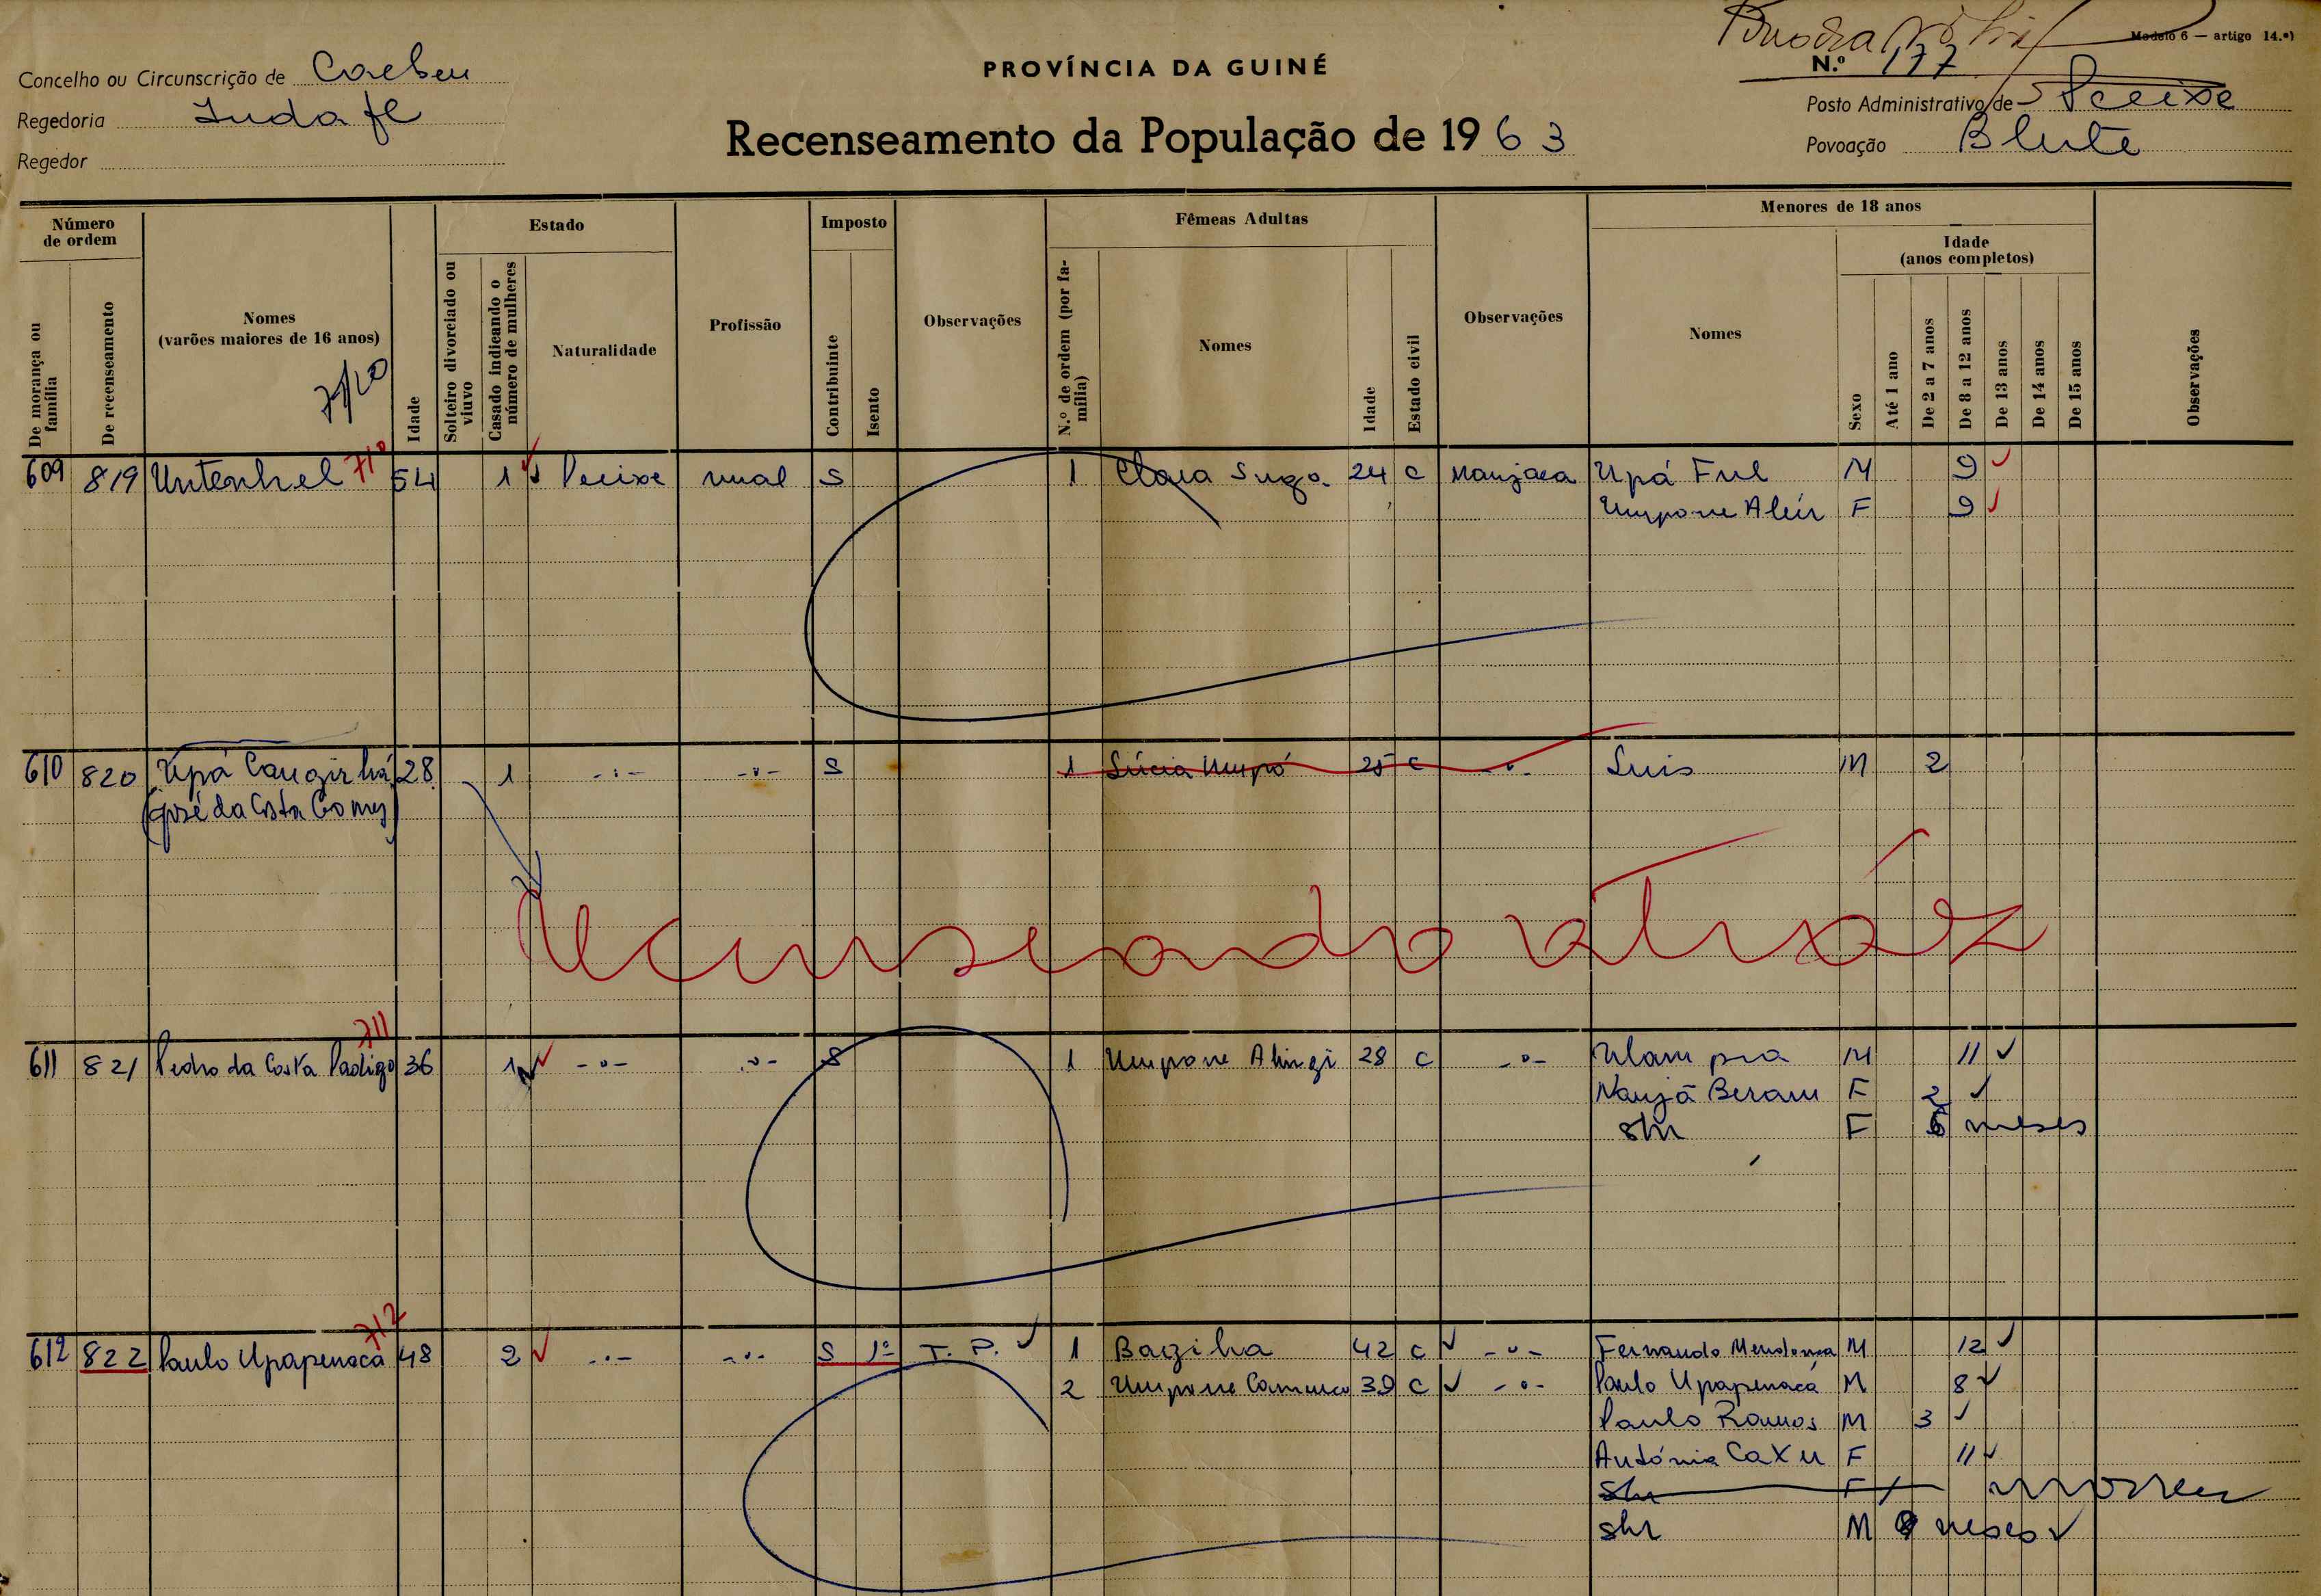 Modelo 6 — artigo 14.º)
N.º 177
Concelho ou Circunscrição de
PROVÍNCIA DA GUINÉ
Posto Administrativo de Pecixe
Regedoria
Recenseamento da População de 1963
Povoação Blute
Regedor
Número de ordem
De morança ou família
De recenseamento
Nomes
(varões maiores de 16 anos)
Idade
Estado
Solteiro divorciado ou viuvo
Casado indicando o número de mulheres
Naturalidade
Profissão
Imposto
Contribuinte
Isento
Observações
Fêmeas Adultas
N.º de ordem (por família)
Nomes
Idade
Estado civil
Observações
Menores de 18 anos
Nomes
Sexo
Idade
(anos completos)
Até 1 ano
De 2 a 7 anos
De 8 a 12 anos
De 13 anos
De 14 anos
De 15 anos
Observações
609 819 Untenhel 54 1 Pecixe rural S 1 Clara 24 c manjaca Upá Ful M 9
F 9
610 820 Upá 28 1 -"- -"- S 1 Lúcia Umpó 25 c -"- Luis M 2
(José da Costa Gomes)
Recenseado atráz
711
611 821 Pedro da Costa Padigo 36 1 -"- -"- S 1 Umpone 28 c -"- M 11
Nanjã Beram F 2
shr F 6 meses
712
612 822 Paulo Upapenaca 48 2 -"- -"- S T. P. 1 42 c -"- Fernando Mendonsa M 12
2 Umpone 39 c -"- Paulo Upapenaca M 8
Paulo Ramos M 3
Antónia Caxu F 11
shr F morreu
shr M meses